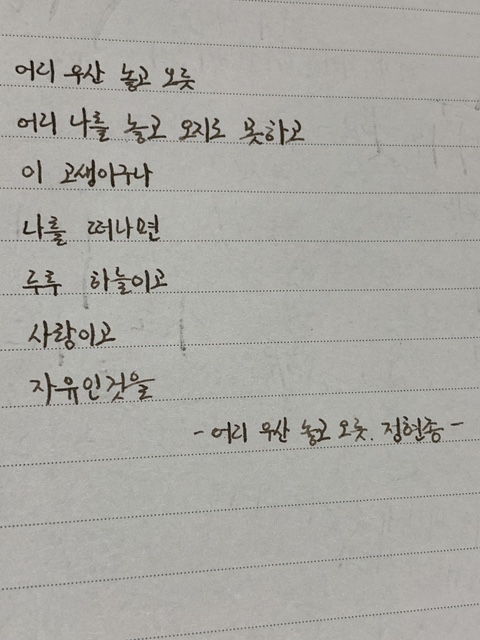 어디 우산 놓고 오듯
어디 나를 놓고 오지도 못하고
이 고생이구나
나를 떠나면
두루 하늘이고
사랑이고
자유인것을
- 어디 우산 놓고 오듯. 정현종 -